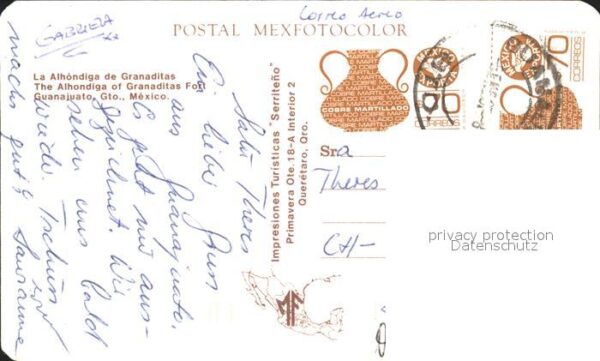 GABRIELA
Correo Aereo
POSTAL MEXFOTOCOLOR
La Alhóndiga de Granaditas
The Alhondiga of Granaditas Fort
Guanajuato, Gto., México.
Salü Theres
liebe Gruss
aus Guanajuato.
Es geht mir aus-
gezeichnet. Wir
sehen uns bald
wieder. Tschüss
machs gut
Impresiones Turísticas "Serriteño"
Primavera Ote. 18-A Interior 2
Querétaro, Qro.
MF
COBRE MARTILLADO
MEXICO EXPORTA
CORREOS
70
MEXICO EXPORTA
CORREOS
70
Sra
Theres
CH-
privacy protection
Datenschutz